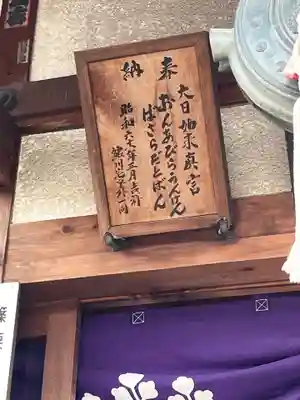 奉納
大日如来真言
おんあびらうんけん
ばざらだとばん
昭和六十年三月吉日